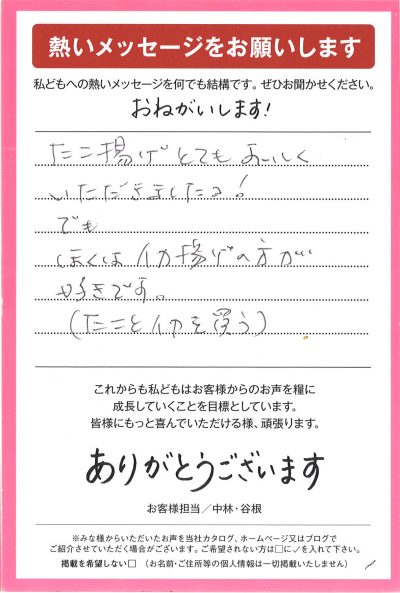 熱いメッセージをお願いします
私どもへの熱いメッセージを何でも結構です。ぜひお聞かせください。
おねがいします!
たこ揚げとてもおいしく
いただきましたよ!
でも
ぼくはイカ揚げの方が
好きです。
(たことイカを買う)
これからも私どもはお客様からのお声を糧に
成長していくことを目標としています。
皆様にもっと喜んでいただける様、頑張ります。
ありがとうございます
お客様担当/中林・谷根
※みな様からいただいたお声を当社カタログ、ホームページ又はブログで
ご紹介させていただく場合がございます。ご希望されない方は□に✓を入れて下さい。
掲載を希望しない□ (お名前・ご住所等の個人情報は一切掲載いたしません)